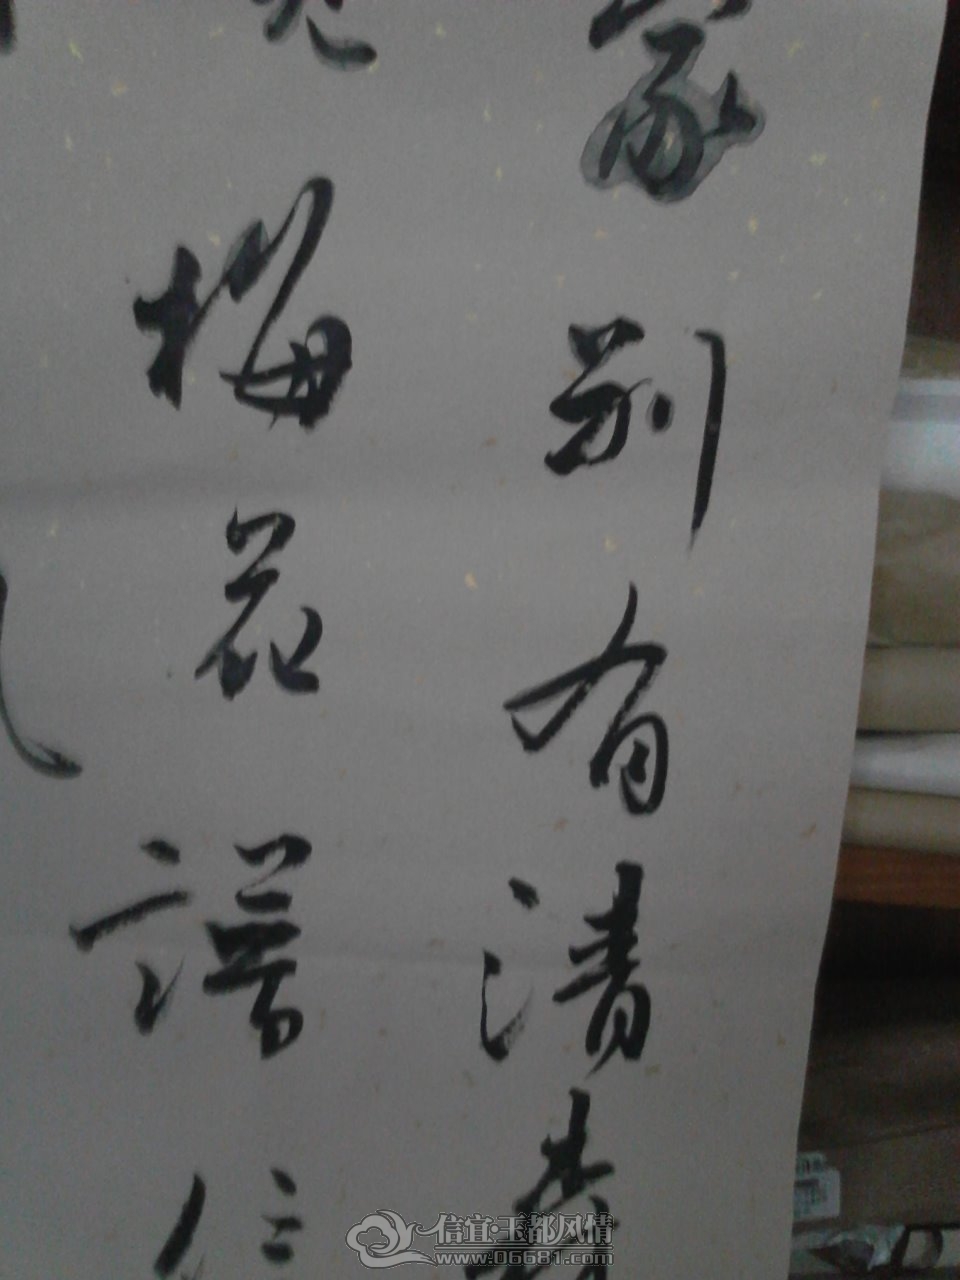 家别有清
梅花谱信
信宜·玉都风情
www.06681.com